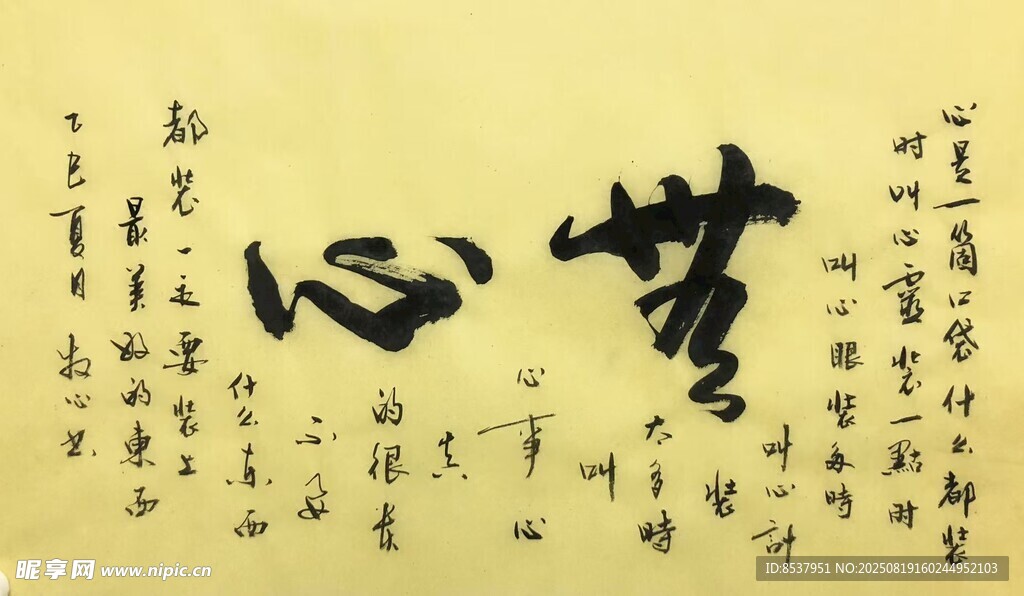 無心
心是一箇口袋什么都装
时叫心靈装一點时
叫心眼装多時
叫心計
装
太多時
叫
心事心
真
的很
不要
什么东西
都装一定要装上
最美好的東西
乙巳夏月牧心书
昵享网 www.nipic.cn
ID:8537951 NO:20250819160244952103